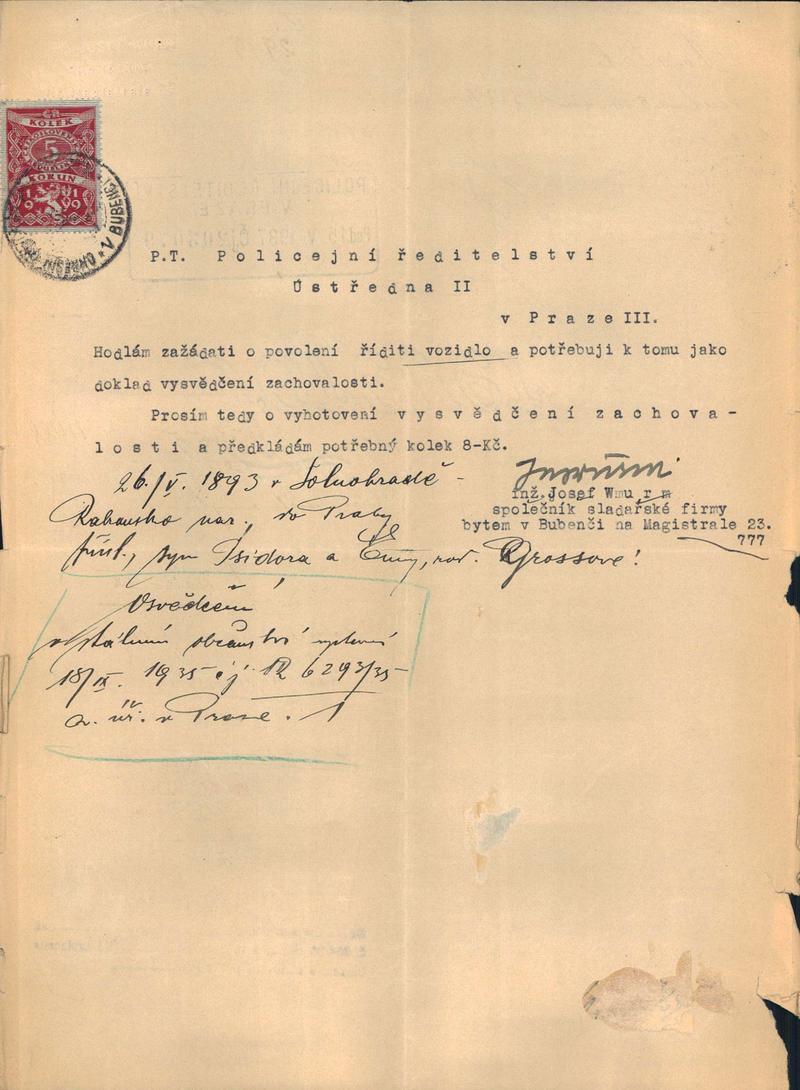 KOLEK
5
KOKUN
19 19
V BUBENČI
P.T. Policejní ředitelství
Ústředna II
v Praze III.
Hodlám zažádati o povolení říditi vozidlo a potřebuji k tomu jako
doklad vysvědčení zachovalosti.
Prosím tedy o vyhotovení vysvědčení zachova-
losti a předkládám potřebný kolek 8-Kč.
inž. Josef Wmurm
společník sladařské firmy
bytem v Bubenči na Magistrale 23.
777
26./V. 1893 v Solnohradě -
Rakousko nar., do Prahy
přísl., syn Isidora a Emy, roz. Grossove!
Osvědčení
o státním občanství vydané
18/IX. 1935 čj. 6293/35
v Praze.